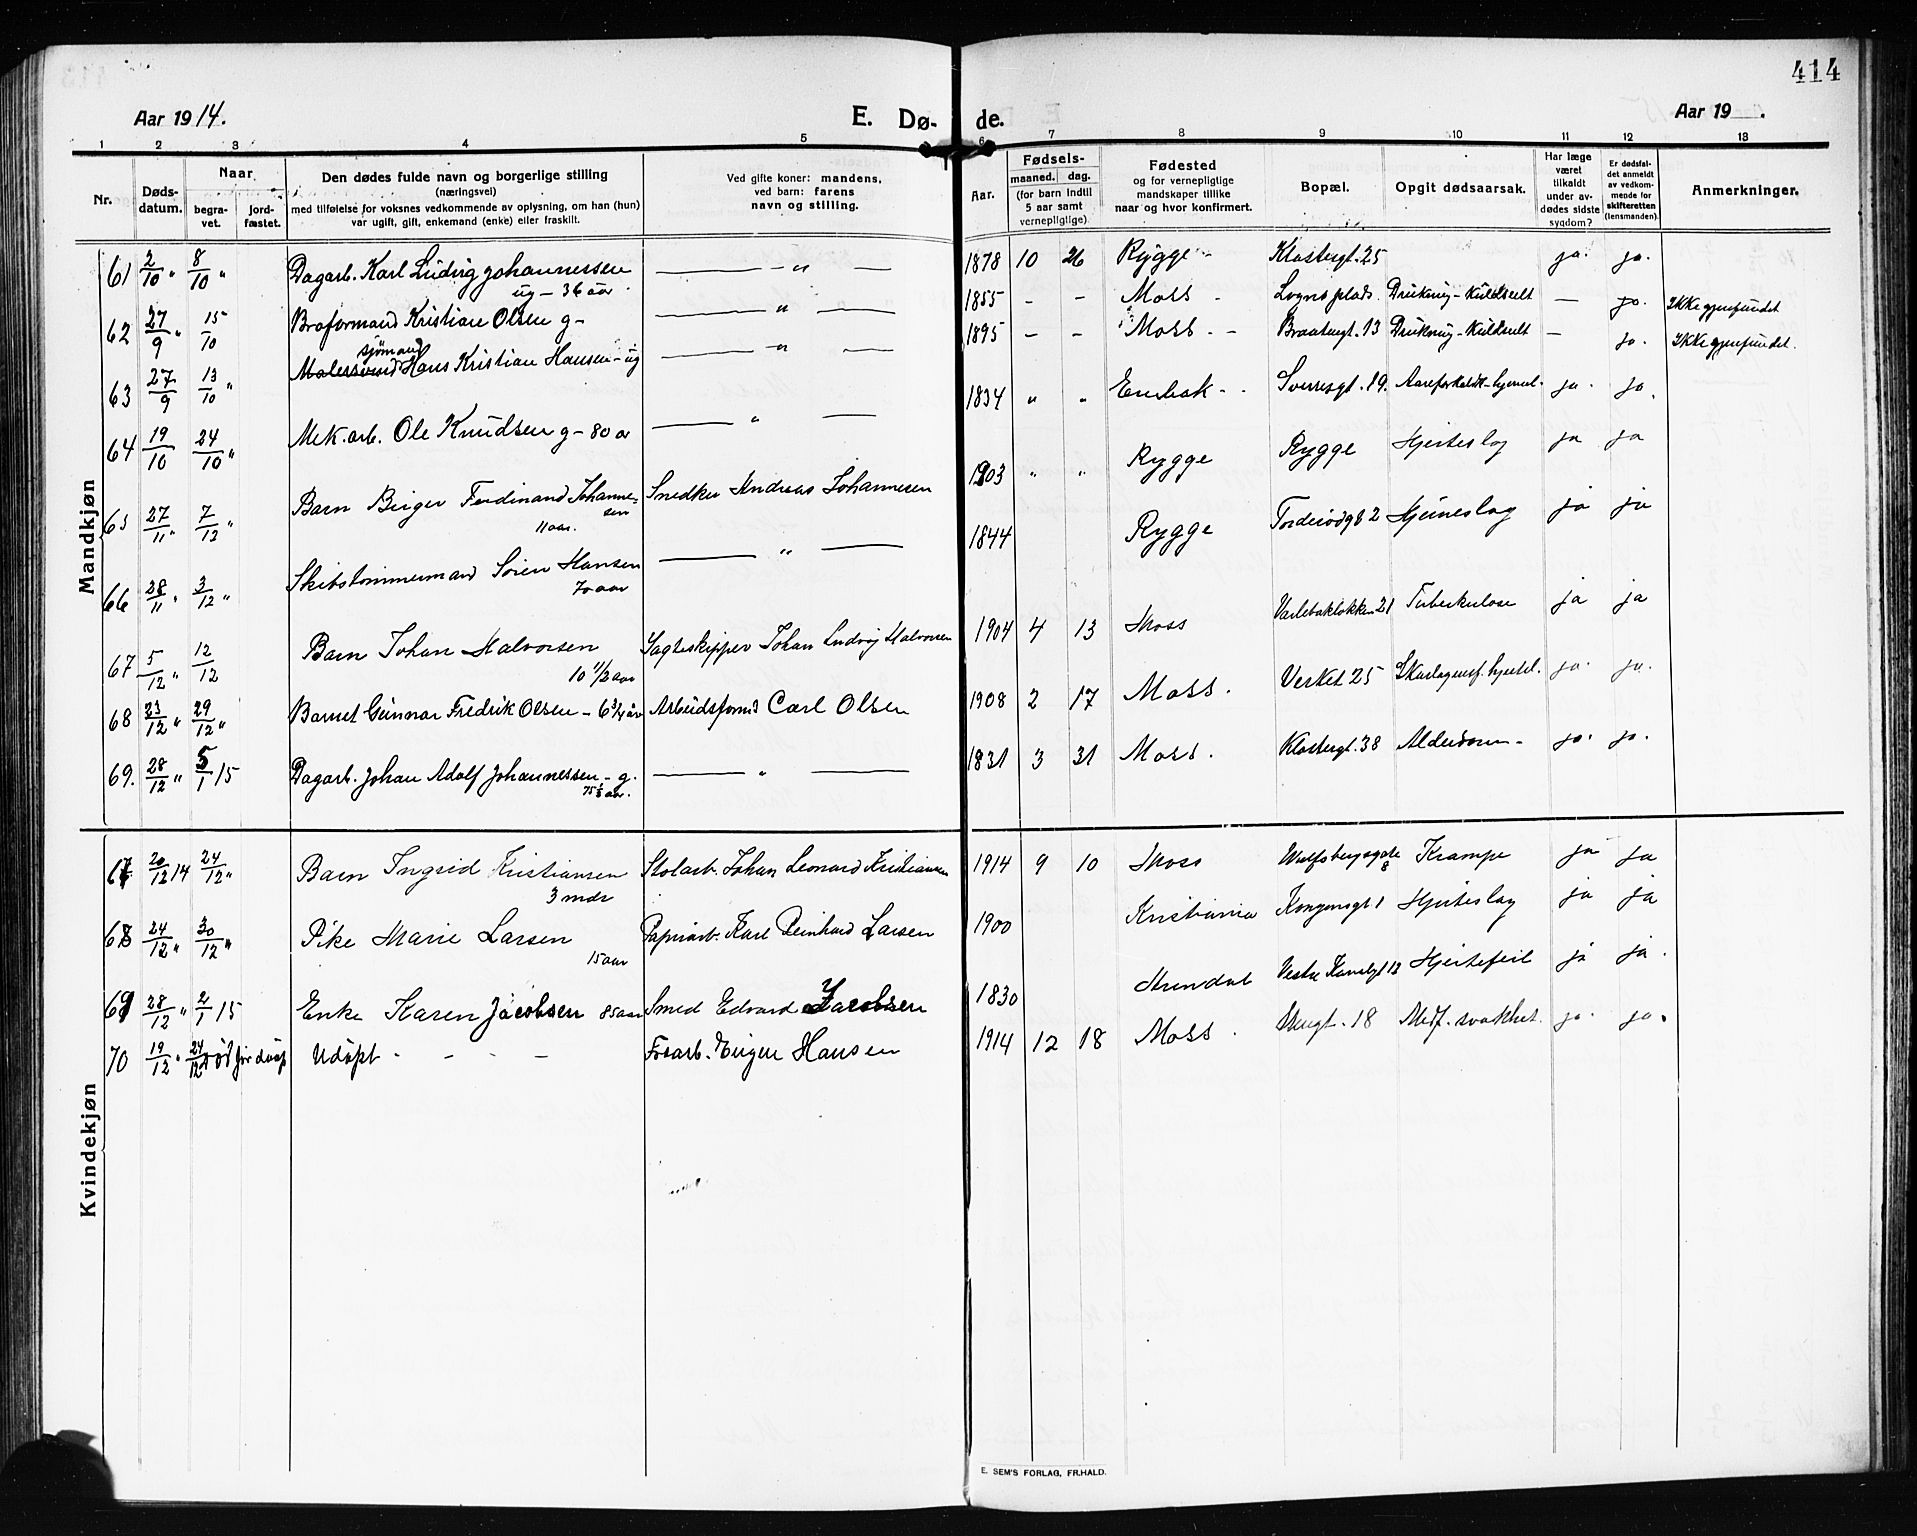 414
Aar 1914.
E. Dø-
de.
Aar 19 .
1 2 3 4 5 6 7 8 9 10 11 12 13
Nr.
Døds-
datum.
Naar
begra-
vet.
jord-
fæstet.
Den dødes fulde navn og borgerlige stilling
(næringsvei)
med tilføielse for voksnes vedkommende av oplysning, om han (hun)
var ugift, gift, enkemand (enke) eller fraskilt.
Ved gifte koner: mandens,
ved barn: farens
navn og stilling.
Fødsels-
Aar. maaned. dag.
(for barn indtil
5 aar samt
vernepligtige).
Fødested
og for vernepligtige
mandskaper tillike
naar og hvor konfirmert.
Bopæl.
Opgit dødsaarsak.
Har læge
været
tilkaldt
under av-
dødes sidste
sygdom?
Er dødsfal-
det anmeldt
av vedkom-
mende for
skifteretten
(lensmanden).
Anmerkninger.
Mandkjøn
61 2/10 " 8/10 " Dagarb. Karl Ludvig Johannessen — " — 1878 10 26 Rygge - Klostergt. 25 ja. ja.
ug - 36 aar.
62 27/9 " 15/10 Braformand Kristian Olsen g- — " — 1855 - - Moss - Logns plads. Drukning - — ja. Ikke gjenfundet
sjømand
63 27/9 13/10 " Malersvend Hans Kristian Hansen - ug — " — 1895 - - Moss. - Braatengt. 13 Drukning - — ja. Ikke gjenfundet.
64 19/10 24/10 " Mek. arb. Ole Knudsen g - 80 aar — " — 1834 " " Enebak - Sverresgt. 19. Aareforkalk - hjerte. ja. ja.
65 27/11 " 7/12 " Barn Birger Ferdinand Johanne- Snedker Andreas Johannesen 1903 " " Rygge Rygge Hjerteslag ja ja
sen
11 aar.
66 28/11 " 3/12 " Skibstømmermand Sören Hansen — " — 1844 Rygge 2 Hjerneslag ja ja
70 aar
67 5/12 " 12/12 Barn Johan Halvorsen Jagteskipper Johan Ludvig Halvorsen 1904 4 13 Moss Varlebakløkken 21 Tuberkulose ja ja
10 1/2 aar
68 23/12 " 29/12 " Barnet Gunnar Fredrik Olsen - 6 3/4 år Arbeidsformd Carl Olsen 1908 2 17 Moss. Verket 25 Skarlagensf. hjertel. ja. ja.
69. 28/12 " 5/1 15 Dagarb. Johan Adolf Johannessen - g. — " — 1831 3 31 Moss. Klostergt. 38 Alderdom - ja. ja.
aar.
Kvindekjøn
67 20/12 14 24/12 " Barn Ingrid Kristiansen Stolarb. Johan Leonard Kristiansen 1914 9 10 Moss Wulfsbergsgate 8 Krampe ja ja
3 mdr
68 24/12 " 30/12 " Pike Marie Larsen Papirarb. Karl Reinhard Larsen 1900 Kristiania Kongensgt 1 Hjerteslag ja ja
15 aar
69 28/12 " 2/1 15 Enke Karen Jacobsen 85 aar Smed Edvard Jacobsen 1830 Vestre Kanalgt 12 Hjertefeil ja ja.
70 19/12 " 24/12 død før dåp Udöpt - - - - Fosarb. Birger Hansen 1914 12 18 Moss. 18 Medf. svakhet. ja. ja.
E. SEM'S FORLAG, FR.HALD.